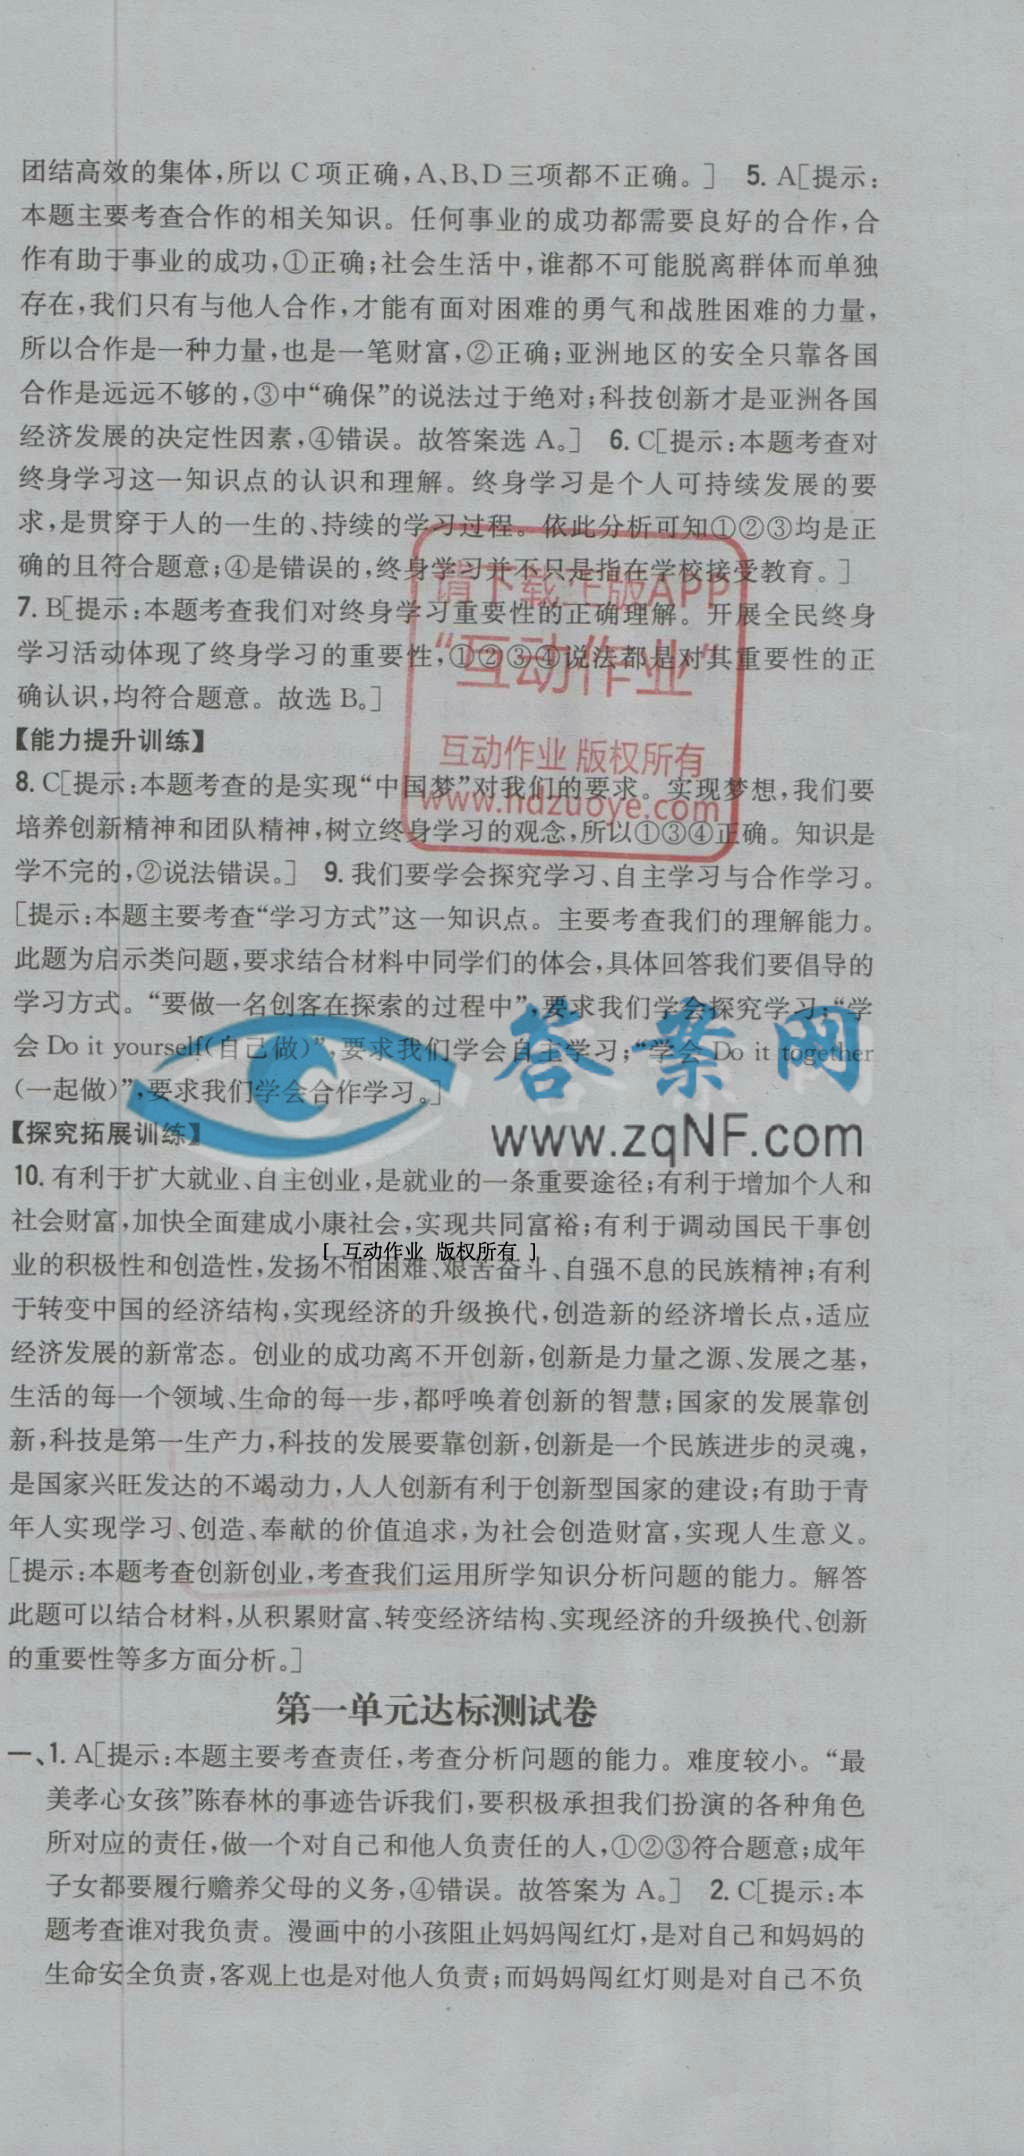 团结高效的集体,所以 C 项正确,A、B、D 三项都不正确。] 5. A[提示:
本题主要考查合作的相关知识。任何事业的成功都需要良好的合作,合
作有助于事业的成功,①正确;社会生活中,谁都不可能脱离群体而单独
存在,我们只有与他人合作,才能有面对困难的勇气和战胜困难的力量,
所以合作是一种力量,也是一笔财富,②正确;亚洲地区的安全只靠各国
合作是远远不够的,③中“确保”的说法过于绝对;科技创新才是亚洲各国
经济发展的决定性因素,④错误。故答案选 A。] 6. C[提示:本题考查对
终身学习这一知识点的认识和理解。终身学习是个人可持续发展的要
求,是贯穿于人的一生的、持续的学习过程。依此分析可知①②③均是正
确的且符合题意;④是错误的,终身学习并不只是指在学校接受教育。]
7. B[提示:本题考查我们对终身学习重要性的正确理解。开展全民终身
学习活动体现了终身学习的重要性,①②③④说法都是对其重要性的正
确认识,均符合题意。故选 B。]
请下载正版APP
“互动作业”
互动作业 版权所有
www.hdzuoye.com
【能力提升训练】
8. C[提示:本题考查的是实现“中国梦”对我们的要求。实现梦想,我们要
培养创新精神和团队精神,树立终身学习的观念,所以①③④正确。知识是
学不完的,②说法错误。] 9. 我们要学会探究学习、自主学习与合作学习。
[提示:本题主要考查“学习方式”这一知识点。主要考查我们的理解能力。
此题为启示类问题,要求结合材料中同学们的体会,具体回答我们要倡导的
学习方式。“要做一名创客在探索的过程中”,要求我们学会探究学习;“学
会 Do it yourself(自己做)”,要求我们学会自主学习;“学会 Do it together
(一起做)”,要求我们学会合作学习。]
答案网
www.zqNF.com
【探究拓展训练】
10. 有利于扩大就业、自主创业,是就业的一条重要途径;有利于增加个人和
社会财富,加快全面建成小康社会,实现共同富裕;有利于调动国民干事创
[ 互动作业 版权所有 ]
业的积极性和创造性,发扬不怕困难、艰苦奋斗、自强不息的民族精神;有利
于转变中国的经济结构,实现经济的升级换代,创造新的经济增长点,适应
经济发展的新常态。创业的成功离不开创新,创新是力量之源、发展之基,
生活的每一个领域、生命的每一步,都呼唤着创新的智慧;国家的发展靠创
新,科技是第一生产力,科技的发展要靠创新,创新是一个民族进步的灵魂,
是国家兴旺发达的不竭动力,人人创新有利于创新型国家的建设;有助于青
年人实现学习、创造、奉献的价值追求,为社会创造财富,实现人生意义。
[提示:本题考查创新创业,考查我们运用所学知识分析问题的能力。解答
此题可以结合材料,从积累财富、转变经济结构、实现经济的升级换代、创新
的重要性等多方面分析。]
第一单元达标测试卷
一、1. A[提示:本题主要考查责任,考查分析问题的能力。难度较小。“最
美孝心女孩”陈春林的事迹告诉我们,要积极承担我们扮演的各种角色
所对应的责任,做一个对自己和他人负责任的人,①②③符合题意;成年
子女都要履行赡养父母的义务,④错误。故答案为 A。] 2. C[提示:本
题考查谁对我负责。漫画中的小孩阻止妈妈闯红灯,是对自己和妈妈的
生命安全负责,客观上也是对他人负责;而妈妈闯红灯则是对自己不负